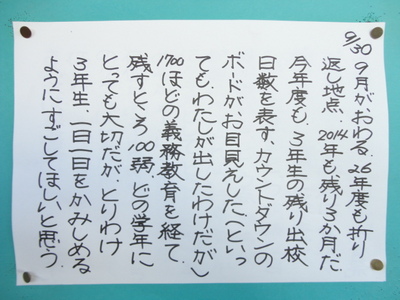 9/30 9月がおわる。26年度も折り
返し地点。2014年も残り3か月だ。
今年度も、3年生の残り出校
日数を表す、カウントダウンの
ボードが、お目見えした（といっ
ても、わたしが出したわけだが）
1700ほどの義務教育を経て、
残すところ100弱。どの学年に
とっても大切だが、とりわけ
3年生、一日一日をかみしめる
ようにすごしてほしいと思う。